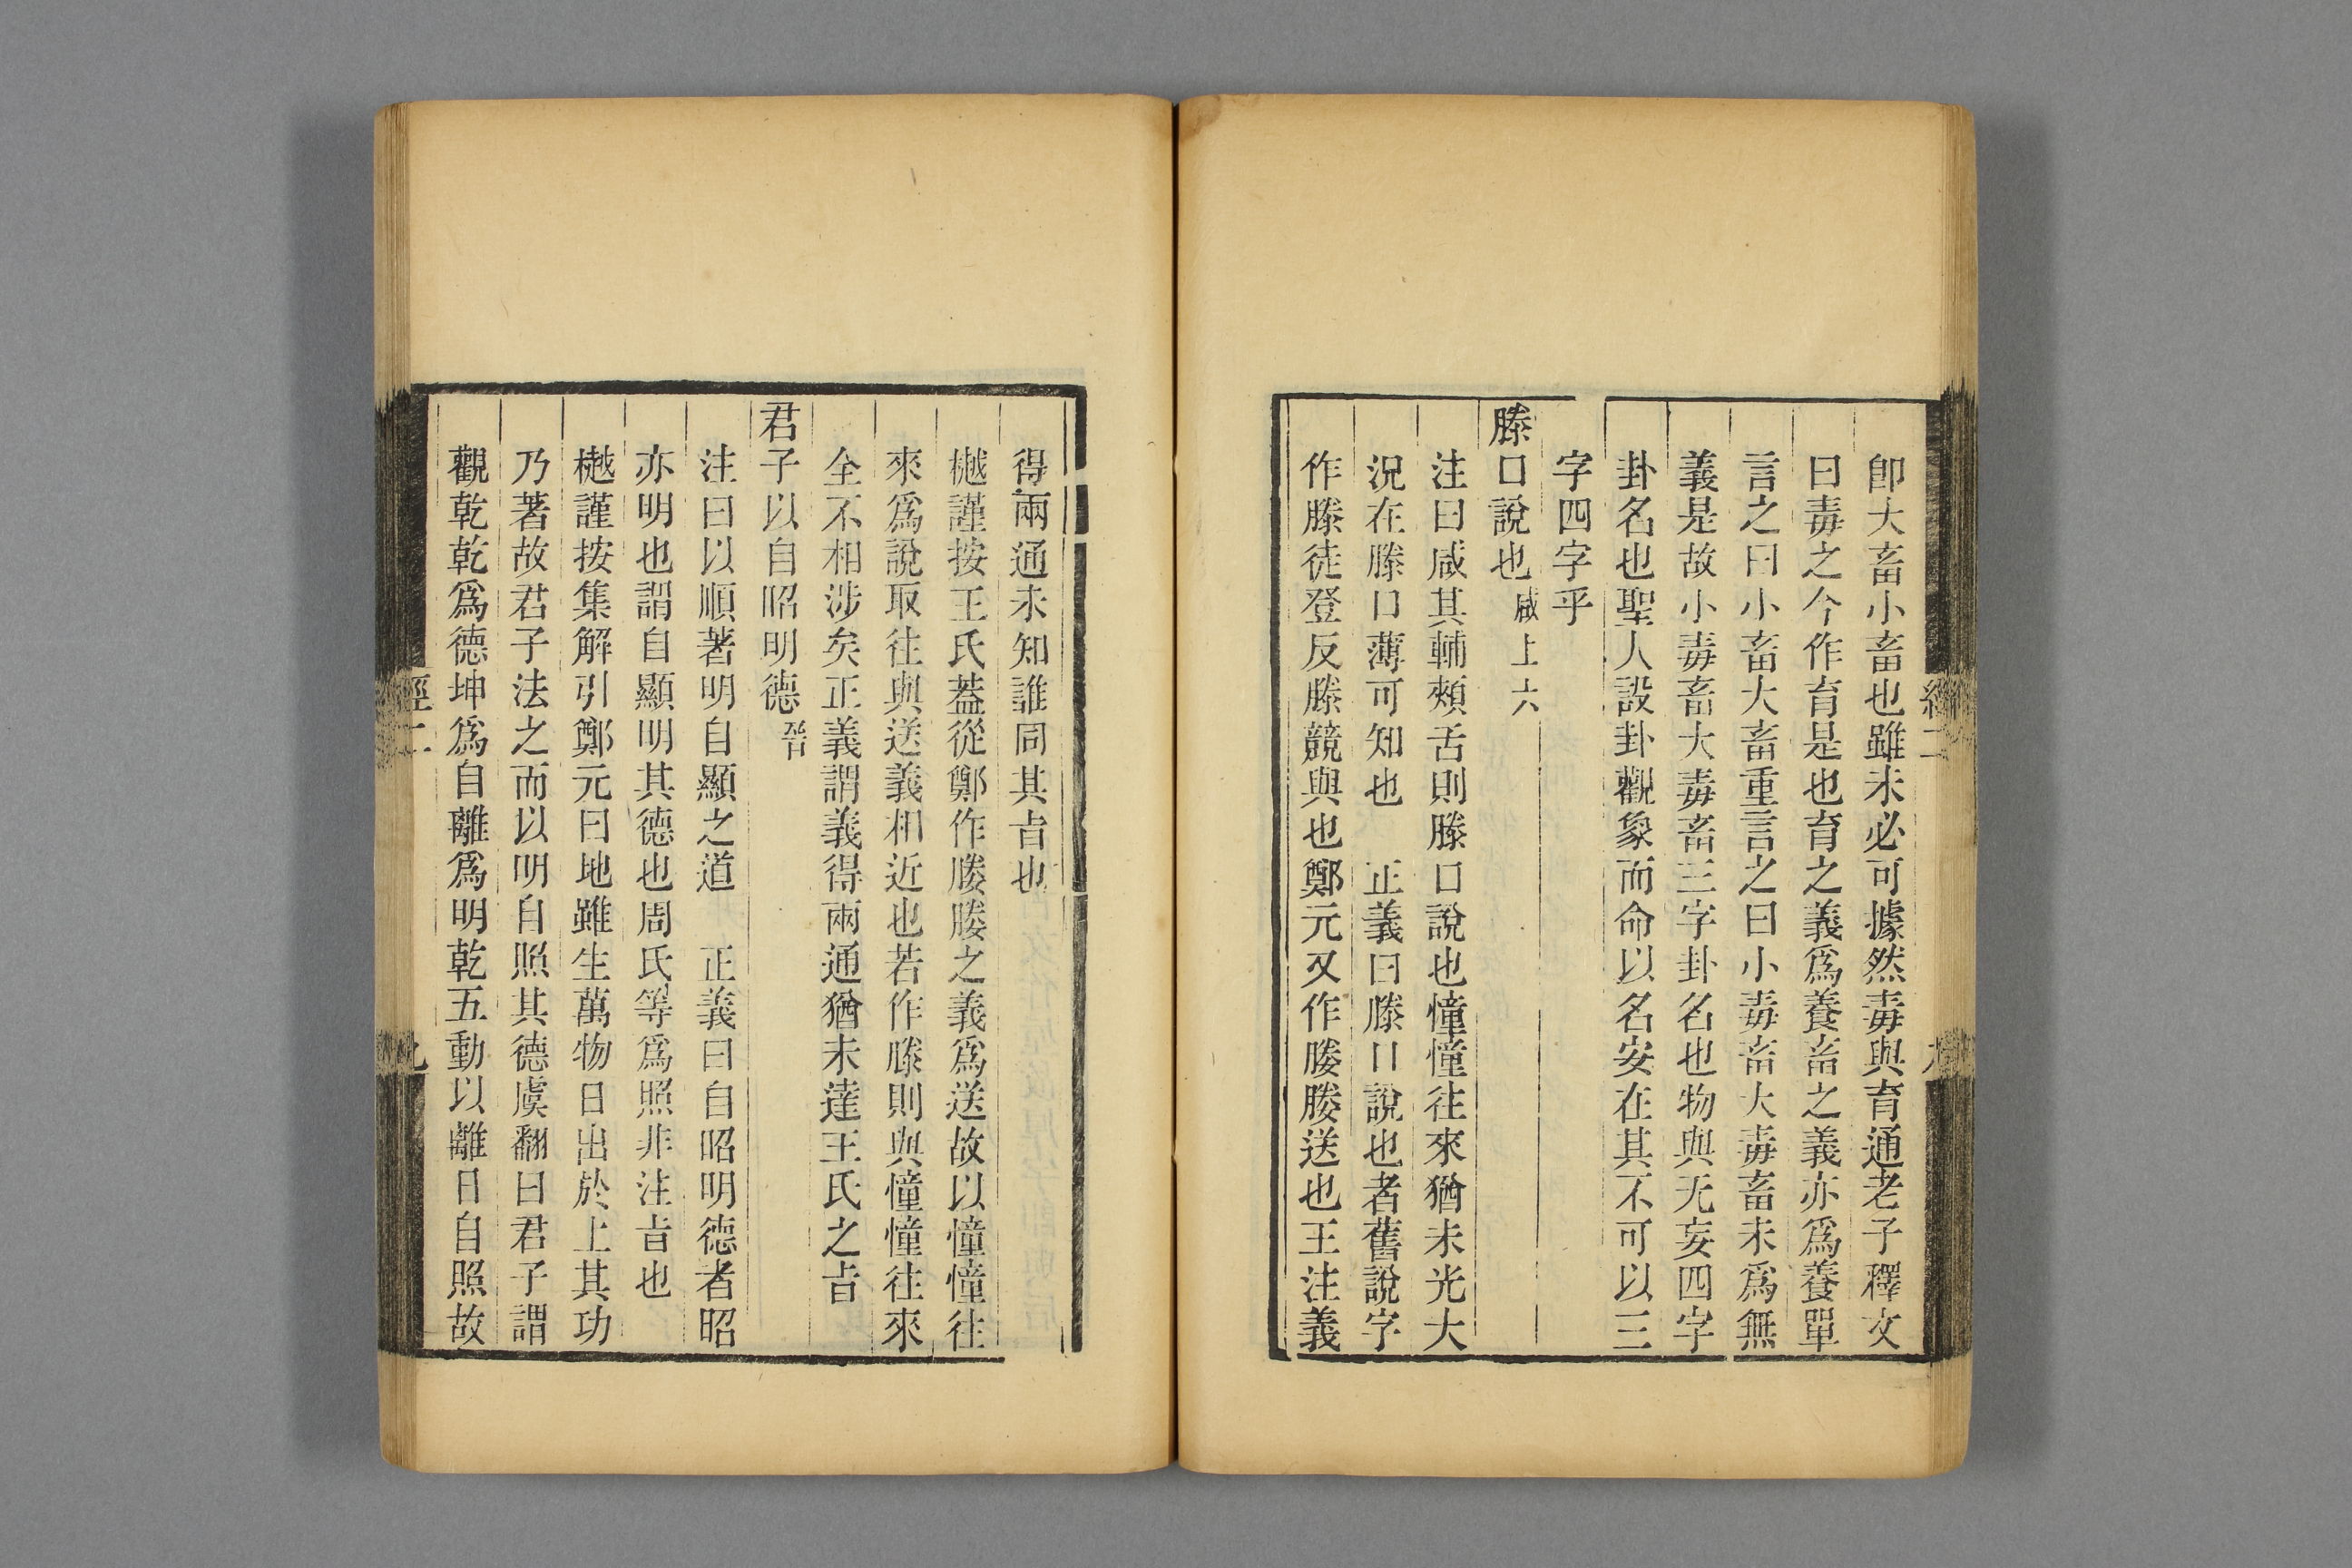 卽大畜小畜也雖未必可據然毒與育通老子釋文
曰毒之今作育是也育之義爲養畜之義亦爲養單
言之曰小畜大畜重言之曰小毒畜大毒畜未爲無
義是故小毒畜大毒畜三字卦名也物與无妄四字
卦名也聖人設卦觀象而命以名安在其不可以三
字四字乎
滕口說也咸上六
注曰咸其輔頰舌則滕口說也憧憧往來猶未光大
況在滕口薄可知也　正義曰滕口說也者舊說字
作滕徒登反滕競與也鄭元又作媵媵送也王注義
得兩通未知誰同其旨也
樾謹按王氏葢從鄭作媵媵之義爲送故以憧憧往
來爲說取往與送義相近也若作滕則與憧憧往來
全不相涉矣正義謂義得兩通猶未達王氏之旨
君子以自昭明德晉
注曰以順著明自顯之道　正義曰自昭明德者昭
亦明也謂自顯明其德也周氏等爲照非注旨也
樾謹按集解引鄭元曰地雖生萬物日出於上其功
乃著故君子法之而以明自照其德虞翻曰君子謂
觀乾乾爲德坤爲自離爲明乾五動以離日自照故
經二